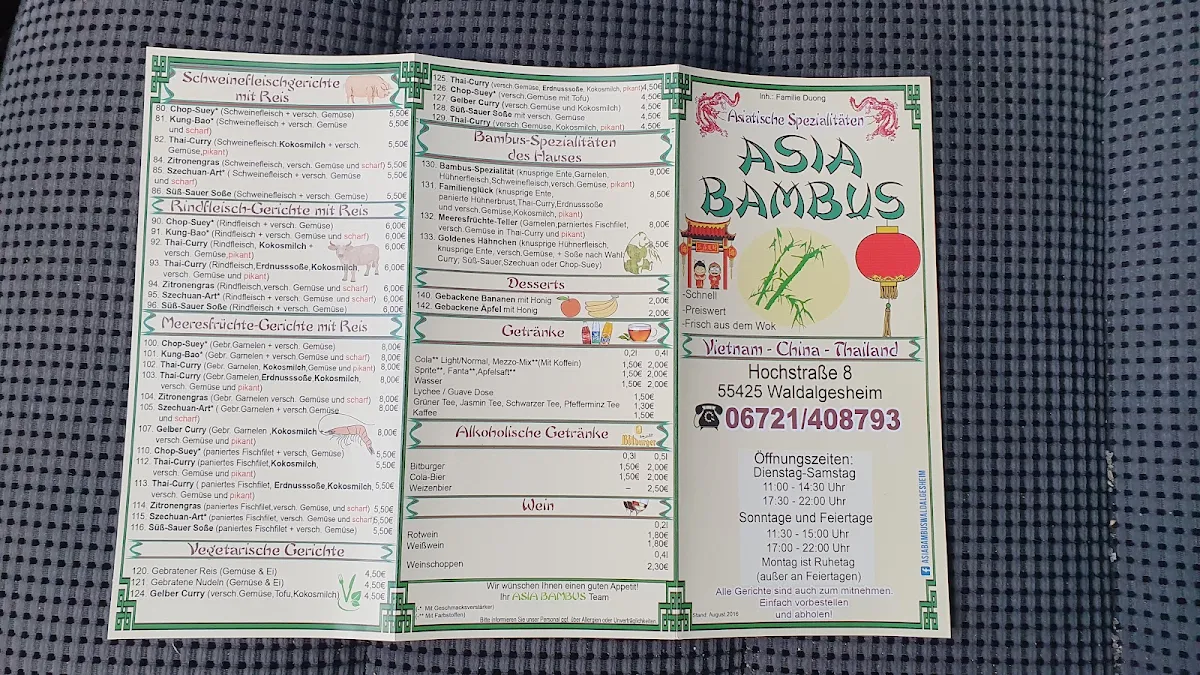 Schweinefleischgerichte
mit Reis
80. Chop-Suey* (Schweinefleisch + versch. Gemüse) 5,50€
81. Kung-Bao* (Schweinefleisch + versch. Gemüse
und scharf) 5,50€
82. Thai-Curry (Schweinefleisch,Kokosmilch + versch.
Gemüse,pikant) 5,50€
84. Zitronengras (Schweinefleisch, versch. Gemüse und scharf) 5,50€
85. Szechuan-Art* (Schweinefleisch + versch. Gemüse
und scharf) 5,50€
86. Süß-Sauer Soße (Schweinefleisch + versch. Gemüse) 5,50€
Rindfleisch-Gerichte mit Reis
90. Chop-Suey* (Rindfleisch + versch. Gemüse) 6,00€
91. Kung-Bao* (Rindfleisch + versch. Gemüse und scharf) 6,00€
92. Thai-Curry (Rindfleisch, Kokosmilch +
versch. Gemüse,pikant) 6,00€
93. Thai-Curry (Rindfleisch,Erdnusssoße,Kokosmilch,
versch. Gemüse und pikant) 6,00€
94. Zitronengras (Rindfleisch,versch. Gemüse und scharf) 6,00€
95. Szechuan-Art* (Rindfleisch, versch. Gemüse und scharf) 6,00€
96. Süß-Saure Soße (Rindfleisch + versch. Gemüse) 6,00€
Meeresfrüchte-Gerichte mit Reis
100. Chop-Suey* (Gebr.Garnelen + versch. Gemüse) 8,00€
101. Kung-Bao* (Gebr. Garnelen + versch. Gemüse und scharf) 8,00€
102. Thai-Curry (Gebr. Garnelen, Kokosmilch,Gemüse und pikant) 8,00€
103. Thai-Curry (Gebr.Garnelen,Erdnusssoße,Kokosmilch,
versch. Gemüse und pikant) 8,00€
104. Zitronengras (Gebr. Garnelen versch. Gemüse und scharf) 8,00€
105. Szechuan-Art* ( Gebr.Garnelen + versch. Gemüse
und scharf) 8,00€
107. Gelber Curry (Gebr. Garnelen ,Kokosmilch +
versch.Gemüse und pikant) 8,00€
110. Chop-Suey* (paniertes Fischfilet + versch. Gemüse) 5,50€
112. Thai-Curry (paniertes Fischfilet,Kokosmilch,
versch. Gemüse und pikant) 5,50€
113. Thai-Curry ( paniertes Fischfilet, Erdnusssoße,Kokosmilch,
versch. Gemüse und pikant) 5,50€
114. Zitronengras (paniertes Fischfilet,versch. Gemüse, und scharf) 5,50€
115. Szechuan-Art* (paniertes Fischfilet, versch. Gemüse und scharf) 5,50€
116. Süß-Sauer Soße (paniertes Fischfilet + versch. Gemüse) 5,50€
Vegetarische Gerichte
120. Gebratener Reis (Gemüse & Ei) 4,50€
121. Gebratene Nudeln (Gemüse & Ei) 4,50€
124. Gelber Curry (versch.Gemüse,Tofu,Kokosmilch) 4,50€
125. Thai-Curry (versch.Gemüse, Erdnusssoße, Kokosmilch, pikant) 4,50€
126. Chop-Suey* (versch.Gemüse mit Tofu) 4,50€
127. Gelber Curry (versch.Gemüse und Kokosmilch) 4,50€
128. Süß-Sauer Soße mit versch. Gemüse 4,50€
129. Thai-Curry (versch.Gemüse, Kokosmilch, pikant) 4,50€
Bambus-Spezialitäten
des Hauses
130. Bambus-Spezialität (knusprige Ente,Garnelen, 9,00€
Hühnerfleisch,Schweinefleisch,versch.Gemüse, pikant)
131. Familienglück (knusprige Ente, 8,50€
panierte Hühnerbrust,Thai-Curry,Erdnusssoße
und versch.Gemüse,Kokosmilch, pikant)
132. Meeresfrüchte-Teller (Garnelen,paniertes Fischfilet, 8,00€
versch.Gemüse in Thai-Curry und pikant)
133. Goldenes Hähnchen (knusprige Hühnerfleisch, 8,50€
knusprige Ente, versch.Gemüse, + Soße nach Wahl
Curry; Süß-Sauer,Szechuan oder Chop-Suey)
Desserts
140. Gebackene Bananen mit Honig 2,00€
142. Gebackene Apfel mit Honig 2,00€
Getränke
0,2l 0,4l
Cola** Light/Normal, Mezzo-Mix**(Mit Koffein) 1,50€ 2,00€
Sprite**, Fanta**,Apfelsaft** 1,50€ 2,00€
Wasser 1,50€ 2,00€
Lychee / Guave Dose 1,50€
Grüner Tee, Jasmin Tee, Schwarzer Tee, Pfefferminz Tee 1,30€
Kaffee 1,50€
Alkoholische Getränke
Bitburger
0,3l 0,5l
Bitburger 1,50€ 2,00€
Cola-Bier 1,50€ 2,00€
Weizenbier – 2,50€
Wein
0,2l
Rotwein 1,80€
Weißwein 1,80€
0,4l
Weinschoppen 2,30€
Wir wünschen Ihnen einen guten Appetit!
Ihr ASIA BAMBUS Team
(* Mit Geschmacksverstärker)
(** Mit Farbstoffen)
Bitte informieren Sie unser Personal ggf. über Allergien oder Unverträglichkeiten
Inh.: Familie Duong
Asiatische Spezialitäten
ASIA
BAMBUS
-Schnell
-Preiswert
-Frisch aus dem Wok
Vietnam - China - Thailand
Hochstraße 8
55425 Waldalgesheim
06721/408793
Öffnungszeiten:
Dienstag-Samstag
11:00 - 14:30 Uhr
17:30 - 22:00 Uhr
Sonntage und Feiertage
11:30 - 15:00 Uhr
17:00 - 22:00 Uhr
Montag ist Ruhetag
(außer an Feiertagen)
Alle Gerichte sind auch zum mitnehmen.
Einfach vorbestellen
und abholen!
Stand: August.2016
f ASIABAMBUSWALDALGESHEIM